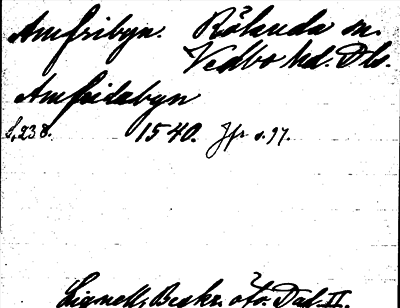 Amfribyn. Rölanda sn.
Vedbo hd. Dls.
Amfridabyn
s. 238. 1540. Jfr s. 97.
Lignell, Beskr. öfv. Dal. II.